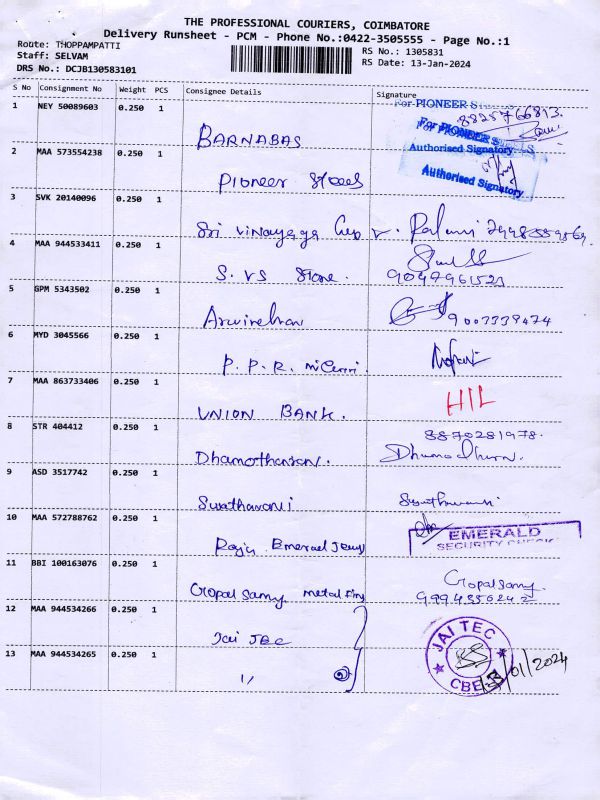 THE PROFESSIONAL COURIERS, COIMBATORE
Delivery Runsheet - PCM - Phone No.:0422-3505555 - Page No.:1
Route: THOPPAMPATTI
RS No.: 1305831
Staff: SELVAM
RS Date: 13-Jan-2024
DRS No.: DCJB130583101
S No Consignment No Weight PCS Consignee Details Signature
1 NEY 50089603 0.250 1 BARNABAS 8825766813.
For PIONEER
For PIONEER
Authorised Signatory
Authorised Signatory
2 MAA 573554238 0.250 1 Pioneer Steels
3 SVK 20140096 0.250 1 Sri Vinayaga
4 MAA 944533411 0.250 1 S. VS Store.
5 GPM 5343502 0.250 1 9003339474
6 MYD 3045566 0.250 1 P. P. R.
7 MAA 863733406 0.250 1 UNION BANK. HIL
8 STR 404412 0.250 1 Dhamotharan. 8870281978.
9 ASD 3517742 0.250 1
10 MAA 572788762 0.250 1 Raju Emerad Jewel EMERALD
SECURITY CHECK
11 BBI 100163076 0.250 1 Gopal Samy metal Gopalsamy
9994356242
12 MAA 944534266 0.250 1 Jai TEC JAI TEC
CBE
13 MAA 944534265 0.250 1 11 13/01/2024